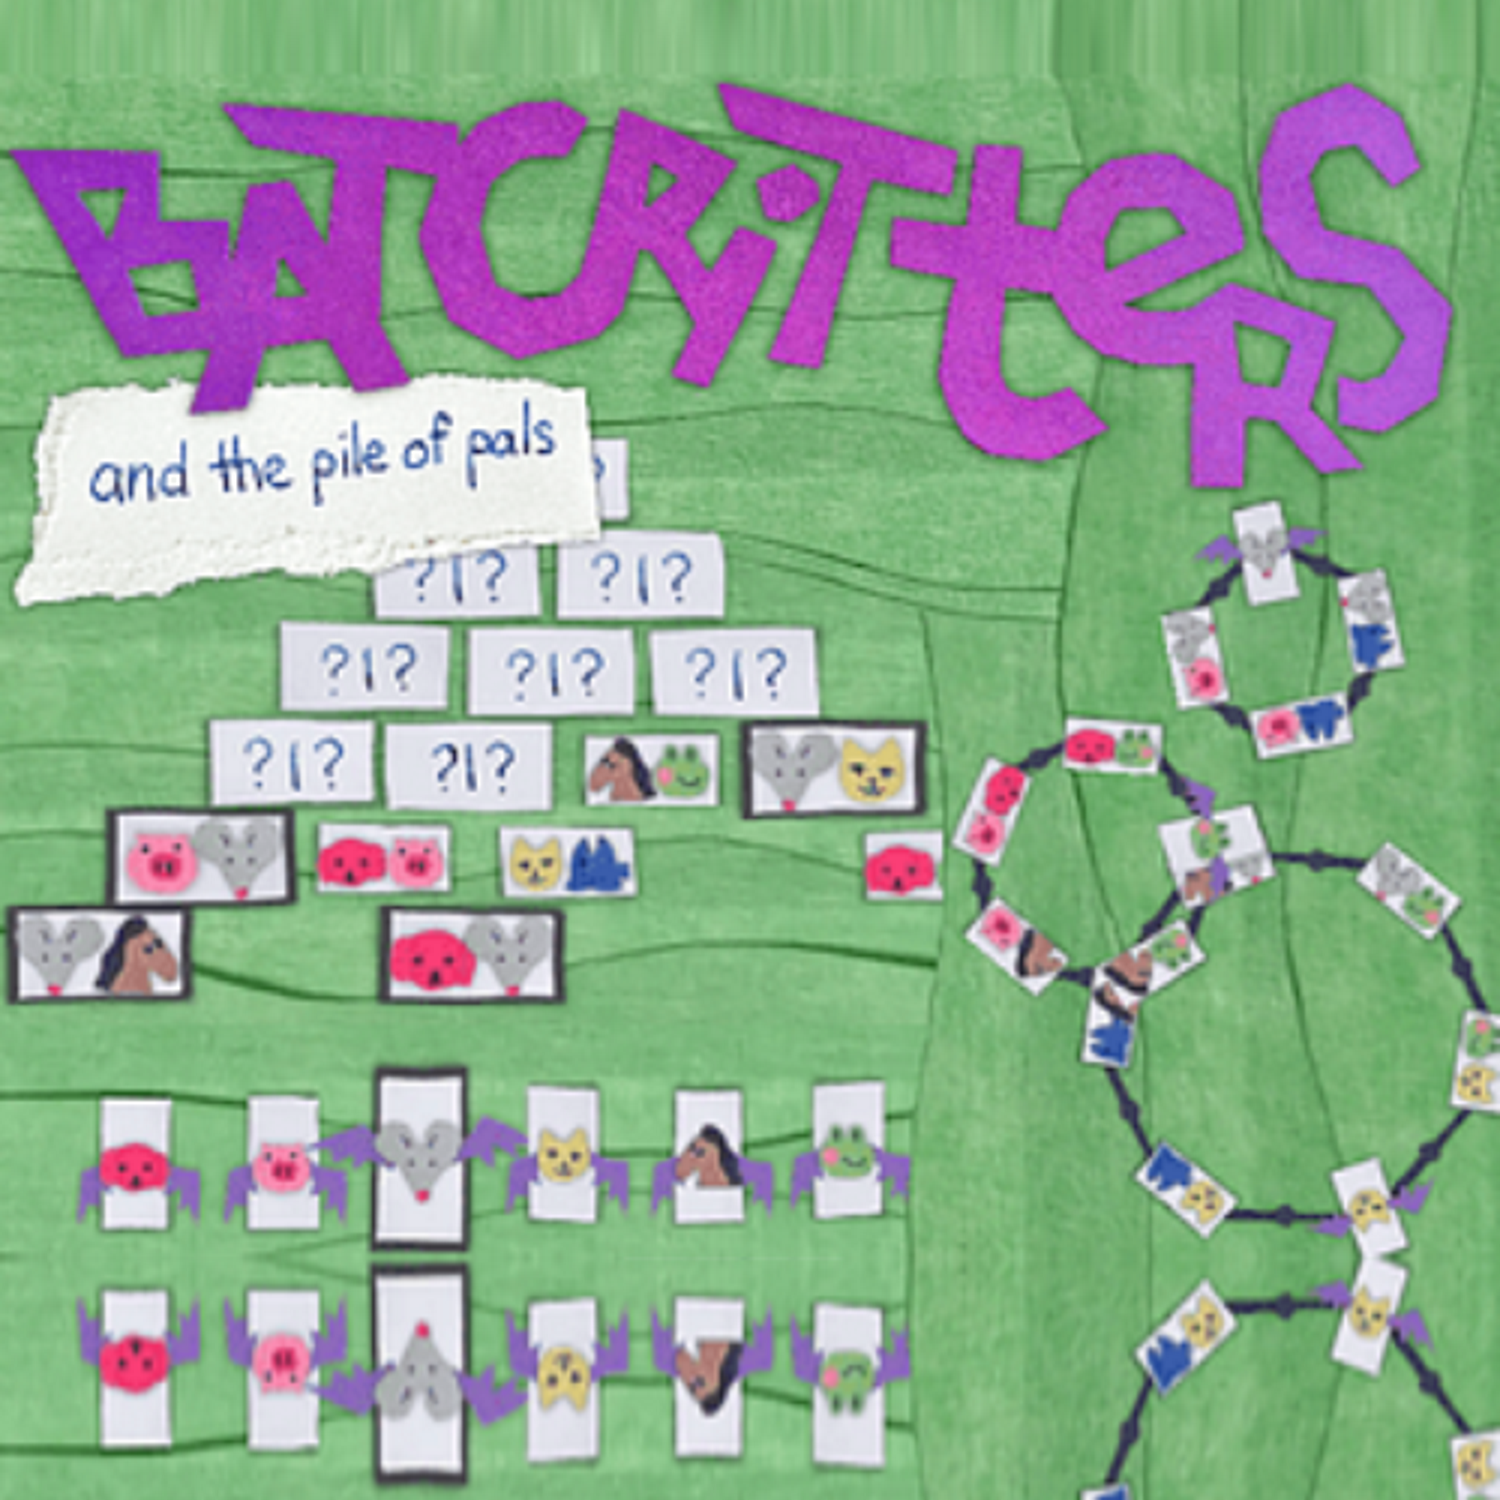 BATCRiTteRS
and the pile of pals
?
?|? ?|?
?|? ?|? ?|?
?|? ?|?